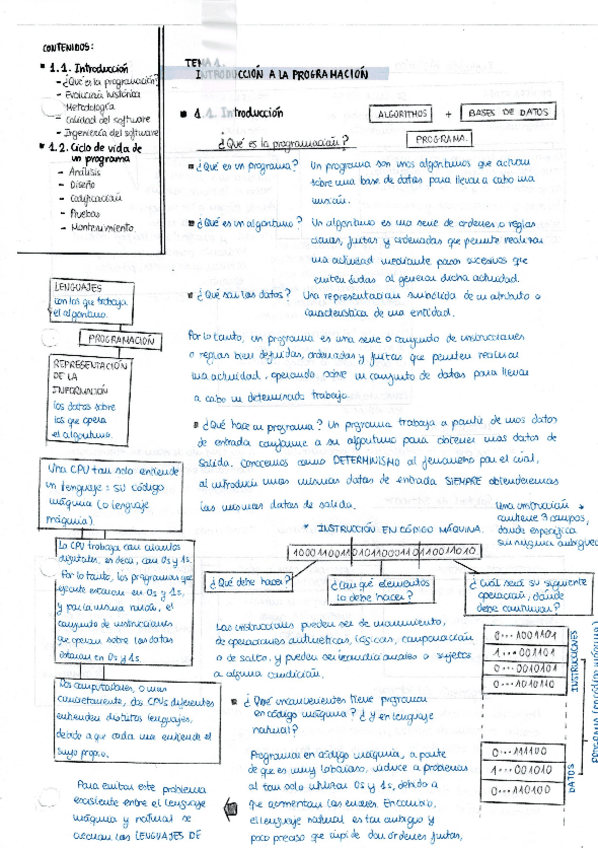 CONTENIDOS:
1.1. Introducción
- ¿Qué es la programación?
- Evolución histórica
- Metodología
- Calidad del software
- Ingeniería del software
1.2. Ciclo de vida de
un programa
- Análisis
- Diseño
- Codificación
- Pruebas
- Mantenimiento.
TEMA 1.
INTRODUCCIÓN A LA PROGRAMACIÓN
1.1. Introducción
ALGORITMOS + BASES DE DATOS
PROGRAMA.
¿Qué es la programación?
¿Qué es un programa? Un programa son unos algoritmos que actúan
sobre una base de datos para llevar a cabo una
misión.
¿Qué es un algoritmo? Un algoritmo es una serie de ordenes o reglas
claras, finitas y ordenadas que permite realizar
una actividad mediante pasos sucesivos que
eviten dudas al generar dicha actividad.
¿Qué son los datos? Una representación simbólica de un atributo o
característica de una entidad.
LENGUAJES
con los que trabaja
el algoritmo.
PROGRAMACIÓN
REPRESENTACIÓN
DE LA
INFORMACIÓN
los datos sobre
los que opera
el algoritmo.
Por lo tanto, un programa es una serie o conjunto de instrucciones
o reglas bien definidas, ordenadas y finitas que permiten realizar
una actividad, operando sobre un conjunto de datos para llevar
a cabo un determinado trabajo.
¿Qué hace un programa? Un programa trabaja a partir de unos datos
de entrada conforme a su algoritmo para obtener unos datos de
salida. Conocemos como DETERMINISMO al fenómeno por el cual,
al introducir unos mismos datos de entrada SIEMPRE obtendremos
los mismos datos de salida.
Una CPU tan solo entiende
un lenguaje: su código
máquina (o lenguaje
máquina)
La CPU trabaja con circuitos
digitales, es decir, con 0s y 1s.
Por lo tanto, los programas que
ejecute estarán en 0s y 1s,
y por la misma razón, el
conjunto de instrucciones
que operan sobre los datos
estarán en 0s y 1s.
Dos computadores, o mas
concretamente, dos CPUs diferentes
entienden distintos lenguajes,
debido a que cada una entiende el
suyo propio.
Para evitar este problema
existente entre el lenguaje
máquina y natural se
LENGUAJES DE
* INSTRUCCIÓN EN CÓDIGO MÁQUINA.
Una instrucción
contiene 3 campos,
donde especifica
sin ninguna
¿Qué debe hacer?
¿Con qué elementos
lo debe hacer?
¿Cuál será su siguiente
operación, dónde
debe continuar?
Las instrucciones pueden ser de movimiento,
de operaciones aritméticas, lógicas, comparación
o de salto, y pueden ser incondicionales o sujetos
a alguna condición.
¿Qué inconvenientes tiene programar
en código máquina? ¿y en lenguaje
natural?
Programar en código máquina, a parte
de que es muy laborioso, induce a problemas
al tan solo utilizar 0s y 1s, debido a
que aumentan los errores. En cambio,
el lenguaje natural es tan ambiguo y
poco preciso que impide dar órdenes finitas,
0...1001101
1...001101
0...0010101
0...1010110
INSTRUCCIONES
0...111100
1...001010
0...110100
DATOS